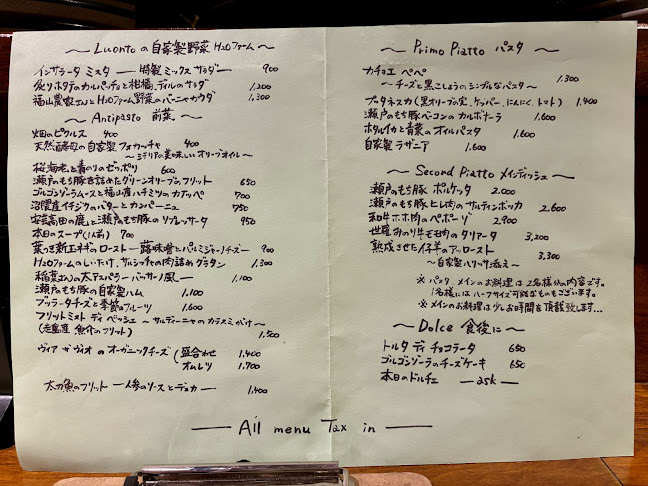 〜 Luontoの自家製野菜 H2Oファーム 〜
インサラータ ミスタ ── 特製 ミックス サラダー 900
炙りホタテのカルパッチョと柑橘、ディルのサラダ 1,200
福山農家さんとH2Oファーム野菜のバーニャカウダ 1,300
〜 Antipasto 前菜 〜
畑のピクルス 400
天然酵母の自家製フォカッチャ 400
〜シチリアの美味しいオリーブオイル〜
桜海老と青のりのゼッポリ 600
瀬戸のもち豚を詰めたグリーンオリーブのフリット 650
ゴルゴンゾーラムースと福山産ハチミツのカナッペ 700
沼隈産イチジクのバターとカンパーニュ 750
安芸高田の鹿と瀬戸もち豚のソプレッサータ 950
本日のスープ(1人前) 700
葉つき新玉ネギのロースト ─ 蕗味噌とパルミジャーノチーズ─ 900
H2Oファームのしいたけ、サルシッチャの肉詰めグラタン 1,300
稲葉さんの太アスパラガー バッサーノ風 ─ 1,100
瀬戸のもち豚の自家製ハム 1,100
ブッラータチーズと季節のフルーツ 1,600
フリットミスト ディ ペッシェ 〜サルディーニャのカラスミがけ〜
(走島産 魚介のフリット) 1,500
ヴィア ザ ヴィオ のオーガニックチーズ (盛合わせ 1,400
オムレツ 1,700
太刀魚のフリット ─ 人参のソースとデュカ ─ 1,400
〜 Primo Piatto パスタ 〜
カチョエ ペペ 1,300
〜チーズと黒こしょうのシンプルなパスタ〜
プッタネスカ(黒オリーブの実、ケッパー、にんにく、トマト) 1,400
瀬戸のもち豚ベーコンのカルボナーラ 1,600
ホタルイカと青菜のオイルパスタ 1,600
自家製ラザニア 1,600
〜 Second Piatto メインディッシュ 〜
瀬戸のもち豚 ポルケッタ 2,000
瀬戸のもち豚ヒレ肉のサルティンボッカ 2,600
和牛ホホ肉のペポーゾ 2,900
世羅みのり牛モモ肉のタリアータ 3,200
熟成させた仔羊のアッロースト 3,300
〜自家製ハリッサ添え〜
※パスタ、メインのお料理は2名様分の内容です。
1名様にはハーフサイズ可能なものもございます。
※メインのお料理は少しお時間を頂戴致します…
〜 Dolce 食後に 〜
トルタ ディ チョコラータ 650
ゴルゴンゾーラのチーズケーキ 650
本日のドルチェ ─ ask ─
── All menu Tax in ──